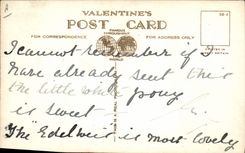 VALENTINE'S
POST CARD
FOR CORRESPONDENCE
FAMOUS THROUGHOUT
FOR ADDRESS ONLY
WORLD
I cannot remember if I
have already sent this
the little white pony
is sweet
The "Edelweis" is most lovely